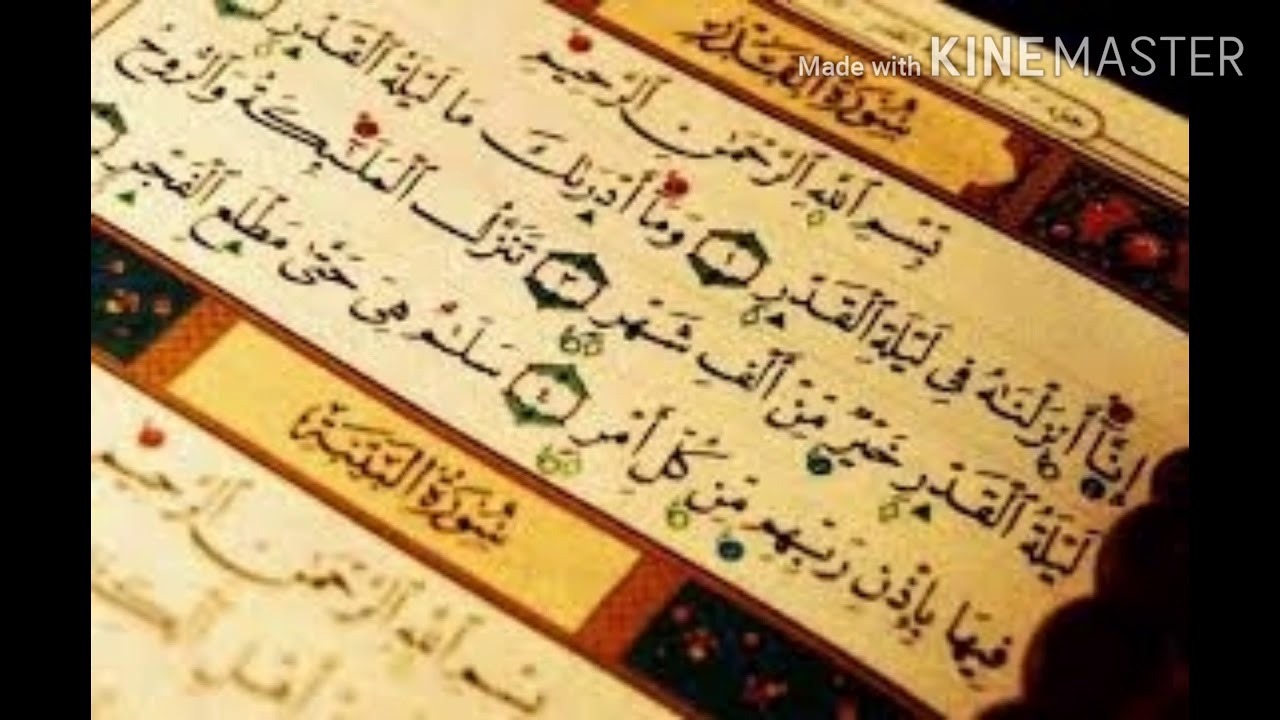 Made with KINEMASTER
سُورَةُ الْقَدْرِ
بِسْمِ ٱللَّهِ ٱلرَّحْمَٰنِ ٱلرَّحِيمِ
إِنَّآ أَنزَلْنَٰهُ فِى لَيْلَةِ ٱلْقَدْرِ ١ وَمَآ أَدْرَىٰكَ مَا لَيْلَةُ ٱلْقَدْرِ
لَيْلَةُ ٱلْقَدْرِ خَيْرٌ مِّنْ أَلْفِ شَهْرٍ ٣ تَنَزَّلُ ٱلْمَلَٰٓئِكَةُ وَٱلرُّوحُ
فِيهَا بِإِذْنِ رَبِّهِم مِّن كُلِّ أَمْرٍ ٤ سَلَٰمٌ هِىَ حَتَّىٰ مَطْلَعِ ٱلْفَجْرِ
سُورَةُ الْبَيِّنَةِ
بِسْمِ ٱللَّهِ ٱلرَّحْمَٰنِ ٱلرَّحِيمِ